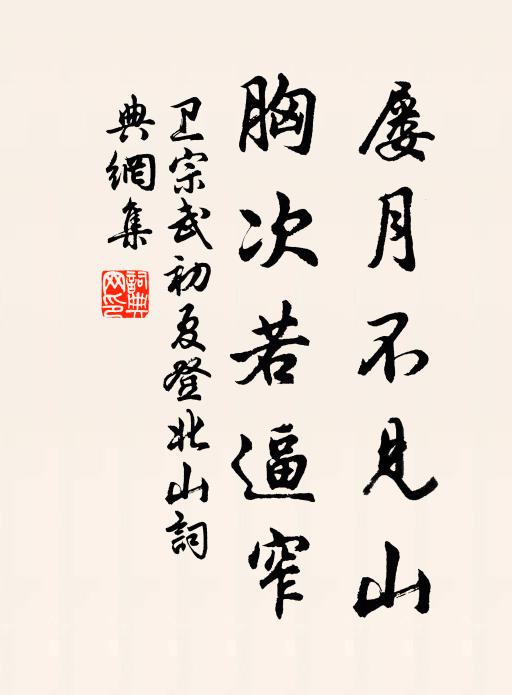 屡月不见山
胸次若逼窄
卫宗武初夏登北山詞
典網集
詞典
网印